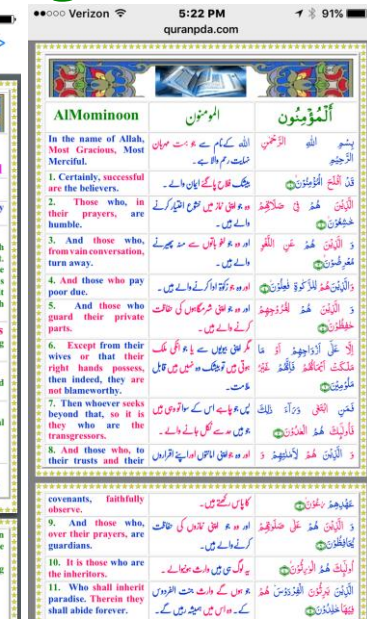 ●●○○○ Verizon 5:22 PM 91%
quranpda.com
AlMominoon المومنون أَلْمُؤْمِنُون
In the name of Allah,
Most Gracious, Most
Merciful.
اللہ کے نام سے جو بہت مہربان
نہایت رحم والا ہے۔
بِسْمِ اللهِ الرَّحْمٰنِ
الرَّحِيْمِ
1. Certainly, successful
are the believers.
بیشک فلاح پاگئے ایمان والے ۔
قَدْ اَفْلَحَ الْمُؤْمِنُوْنَ
2. Those who, in
their prayers, are
humble.
وہ جو اپنی نماز میں خشوع اختیار کرنے
والے ہیں۔
الَّذِيْنَ هُمْ فِيْ صَلَاتِهِمْ
خٰشِعُوْنَ
3. And those who,
from vain conversation,
turn away.
اور وہ جو لغو باتوں سے منہ پھیرنے
والے ہیں۔
وَ الَّذِيْنَ هُمْ عَنِ اللَّغْوِ
مُعْرِضُوْنَ
4. And those who pay
poor due.
اور وہ جو زکوٰۃ ادا کرنے والے ہیں ۔
وَالَّذِيْنَ هُمْ لِلزَّكٰوةِ فٰعِلُوْنَ
5. And those who
guard their private
parts.
اور وہ جو اپنی شرمگاہوں کی حفاظت
کرنے والے ہیں ۔
وَ الَّذِيْنَ هُمْ لِفُرُوْجِهِمْ
حٰفِظُوْنَ
6. Except from their
wives or that their
right hands possess,
then indeed, they are
not blameworthy.
مگر اپنی بیویوں سے یا جو انکی ملک
ہوتی ہیں تو بیشک وہ نہیں ہیں قابل
ملامت۔
اِلَّا عَلٰٓى اَزْوَاجِهِمْ اَوْ مَا
مَلَكَتْ اَيْمَانُهُمْ فَاِنَّهُمْ غَيْرُ
مَلُوْمِيْنَ
7. Then whoever seeks
beyond that, so it is
they who are the
transgressors.
پس جو چاہے اس کے سوا تو وہی ہیں
جو ہیں حد سے نکل جانے والے ۔
فَمَنِ ابْتَغٰى وَرَآءَ ذٰلِكَ
فَاُولٰٓئِكَ هُمُ الْعٰدُوْنَ
8. And those who, to
their trusts and their
اور وہ جو اپنی امانتوں اور اپنے اقراروں
وَ الَّذِيْنَ هُمْ لِاَمٰنٰتِهِمْ وَ
covenants, faithfully
observe.
کا پاس رکھتے ہیں۔
عَهْدِهِمْ رٰعُوْنَ
9. And those who,
over their prayers, are
guardians.
اور وہ جو اپنی نمازوں کی حفاظت
کرنے والے ہیں۔
وَ الَّذِيْنَ هُمْ عَلٰى صَلَوٰتِهِمْ
يُحَافِظُوْنَ
10. It is those who are
the inheritors.
یہ لوگ ہی ہیں وارث ہونیوالے ۔
اُولٰٓئِكَ هُمُ الْوٰرِثُوْنَ
11. Who shall inherit
paradise. Therein they
shall abide forever.
جو ہوں گے وارث جنت الفردوس
کے۔ وہ اس میں ہمیشہ رہیں گے۔
الَّذِيْنَ يَرِثُوْنَ الْفِرْدَوْسَ هُمْ
فِيْهَا خٰلِدُوْنَ